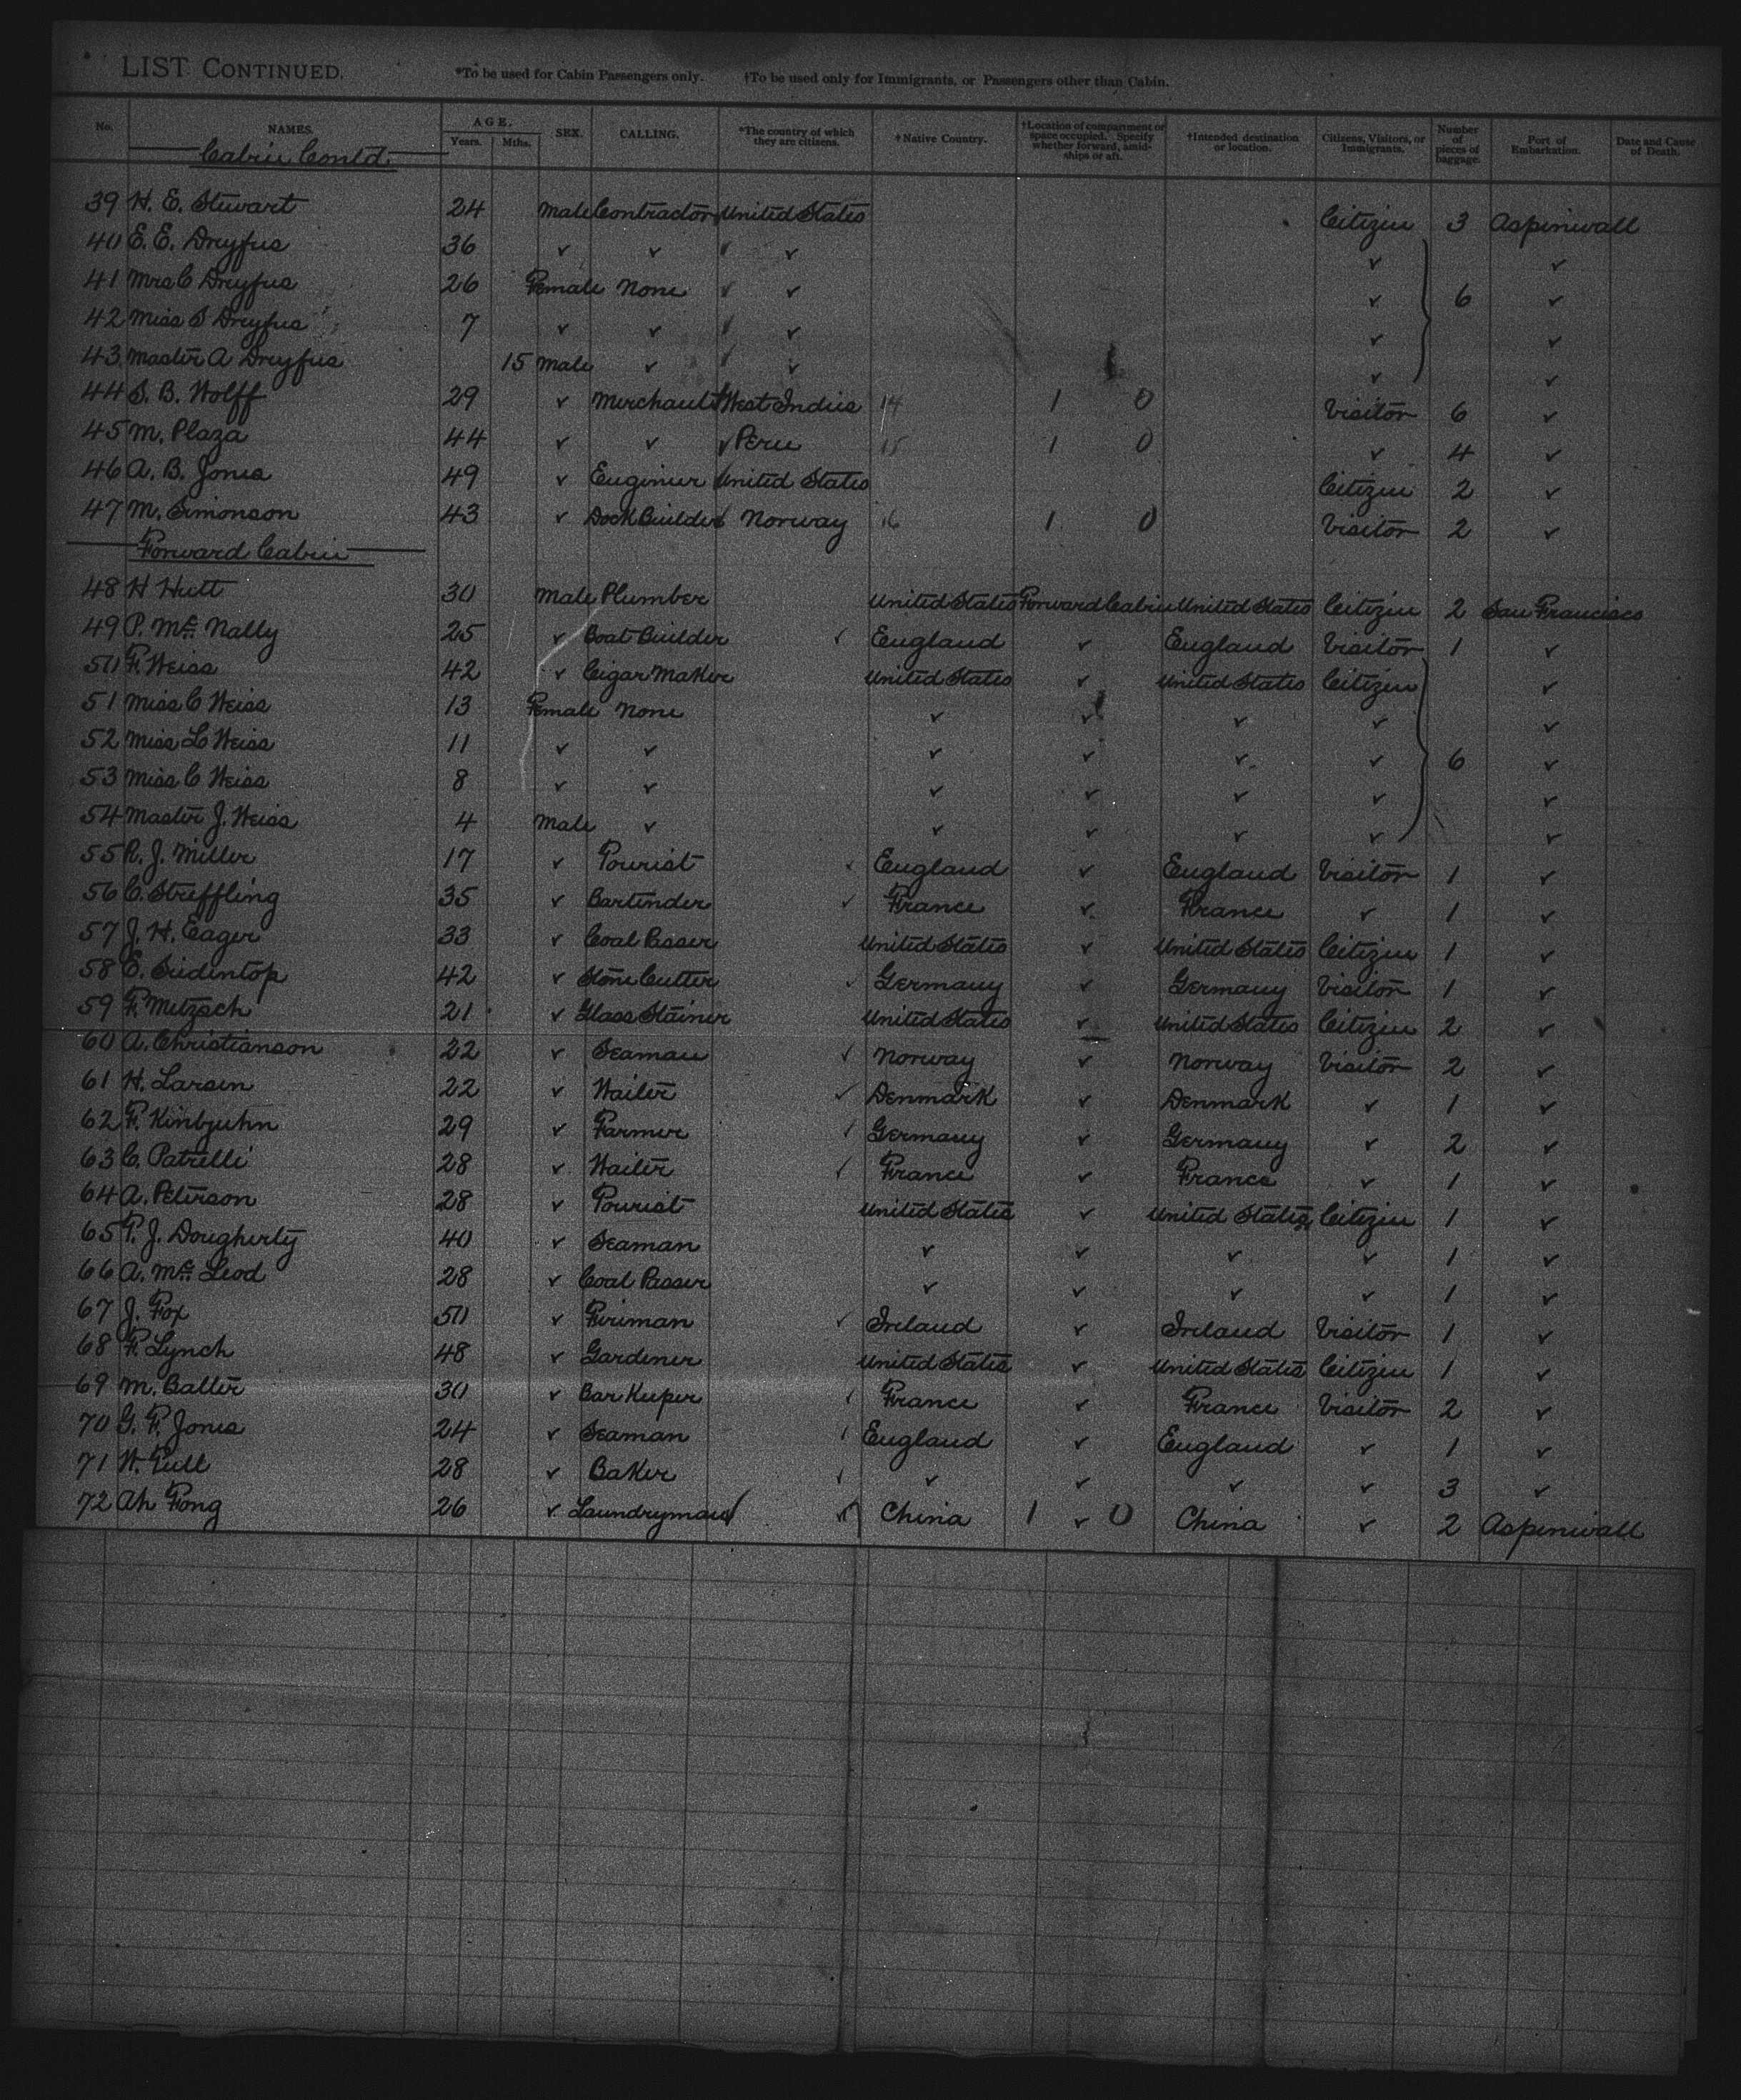 LIST CONTINUED. *To be used for Cabin Passengers only. †To be used only for Immigrants, or Passengers other than Cabin.
No. NAMES. AGE. Years. Mths. SEX. CALLING. *The country of which they are citizens. *Native Country. †Location of compartment or space occupied. Specify whether forward, amidships or aft. †Intended destination or location. Citizens, Visitors, or Immigrants. Number of pieces of baggage. Port of Embarkation. Date and Cause of Death.
Cabin Contd.
39 H. E. Stewart 24 Male Contractor United States Citizen 3 Aspinwall
40 E. E. Dreyfus 36 ✓ ✓ ✓ ✓ ✓
41 Mrs C Dreyfus 26 Female None ✓ ✓ 6 ✓
42 Miss S Dreyfus 7 ✓ ✓ ✓ ✓ ✓
43 Master A Dreyfus 15 Male ✓ ✓ ✓ ✓
44 S. B. Wolff 29 ✓ Merchant West Indies 14 1 0 Visitor 6 ✓
45 M. Plaza 44 ✓ ✓ ✓ Peru 15 1 0 ✓ 4 ✓
46 A. B. Jones 49 ✓ Engineer United States Citizen 2 ✓
47 M. Simonson 43 ✓ Dock Builder Norway 16 1 0 Visitor 2 ✓
Forward Cabin
48 H Hutt 30 Male Plumber United States Forward Cabin United States Citizen 2 San Francisco
49 P. Mc Nally 25 ✓ Boat Builder ✓ England ✓ England Visitor 1 ✓
50 F. Weiss 42 ✓ Cigar Maker United States ✓ United States Citizen ✓
51 Miss C Weiss 13 Female None ✓ ✓ ✓ ✓ ✓
52 Miss L Weiss 11 ✓ ✓ ✓ ✓ ✓ ✓ 6 ✓
53 Miss C Weiss 8 ✓ ✓ ✓ ✓ ✓ ✓ ✓
54 Master J. Weiss 4 Male ✓ ✓ ✓ ✓ ✓ ✓
55 R. J. Miller 17 ✓ Tourist ✓ England ✓ England Visitor 1 ✓
56 C. Streffling 35 ✓ Bartender ✓ France ✓ France ✓ 1 ✓
57 J. H. Eager 33 ✓ Coal Passer United States ✓ United States Citizen 1 ✓
58 E. Siedentop 42 ✓ Stone Cutter ✓ Germany ✓ Germany Visitor 1 ✓
59 F. Metzsch 21 ✓ Glass Stainer United States ✓ United States Citizen 2 ✓
60 A. Christianson 22 ✓ Seaman ✓ Norway ✓ Norway Visitor 2 ✓
61 H. Larsen 22 ✓ Waiter ✓ Denmark ✓ Denmark ✓ 1 ✓
62 F. 29 ✓ Farmer ✓ Germany ✓ Germany ✓ 2 ✓
63 C. Patrelli 28 ✓ Waiter ✓ France ✓ France ✓ 1 ✓
64 A. Peterson 28 ✓ Tourist United States ✓ United States Citizen 1 ✓
65 P. J. Dougherty 40 ✓ Seaman ✓ ✓ ✓ ✓ 1 ✓
66 A. Mc Leod 28 ✓ Coal Passer ✓ ✓ ✓ ✓ 1 ✓
67 J. Fox 50 ✓ Fireman ✓ Ireland ✓ Ireland Visitor 1 ✓
68 F. Lynch 48 ✓ Gardener United States ✓ United States Citizen 1 ✓
69 M. Balter 30 ✓ Bar Keeper ✓ France ✓ France Visitor 2 ✓
70 G. F. Jones 24 ✓ Seaman ✓ England ✓ England ✓ 1 ✓
71 W. 28 ✓ Baker ✓ ✓ ✓ ✓ ✓ 3 ✓
72 Ah Fong 26 ✓ Laundryman ✓ China 1 ✓ 0 China ✓ 2 Aspinwall